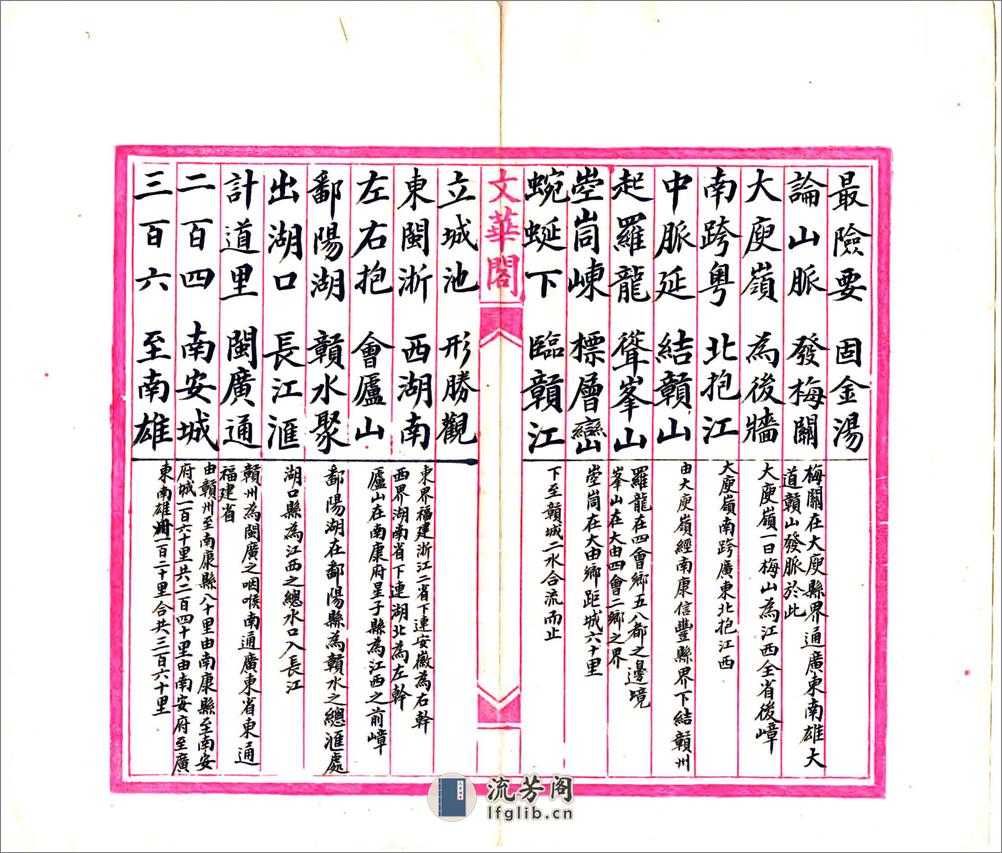 最險要 固金湯
論山脈 發梅關
梅關在大庾縣界通廣東南雄大
道贛山發脈於此
大庾嶺 為後牆
大庾嶺一曰梅山為江西全省後嶂
南跨粵 北抱江
大庾嶺南跨廣東北抱江西
中脈延 結贛山
由大庾嶺經南康信豐縣界下結贛州
起羅龍 聳峯山
羅龍在四會鄉五八都之邊境
峯山在大由四會二鄉之界
崆峒崠 標層巒
崆峒在大由鄉距城六十里
蜿蜒下 臨贛江
下至贛城二水合流而止
文華閣
立城池 形勝觀
東閩浙 西湖南
東界福建浙江二省下連安徽為右幹
西界湖南省下連湖北為左幹
左右抱 會廬山
廬山在南康府星子縣為江西之前嶂
鄱陽湖 贛水聚
鄱陽湖在鄱陽縣為贛水之總滙處
出湖口 長江滙
湖口縣為江西之總水口入長江
計道里 閩廣通
贛州為閩廣之咽喉南通廣東省東通
福建省
二百四 南安城
由贛州至南康縣八十里由南康縣至南安
府城一百六十里共二百四十里由南安府至廣
三百六 至南雄
東南雄州一百二十里合共三百六十里
流芳阁
lfglib.cn